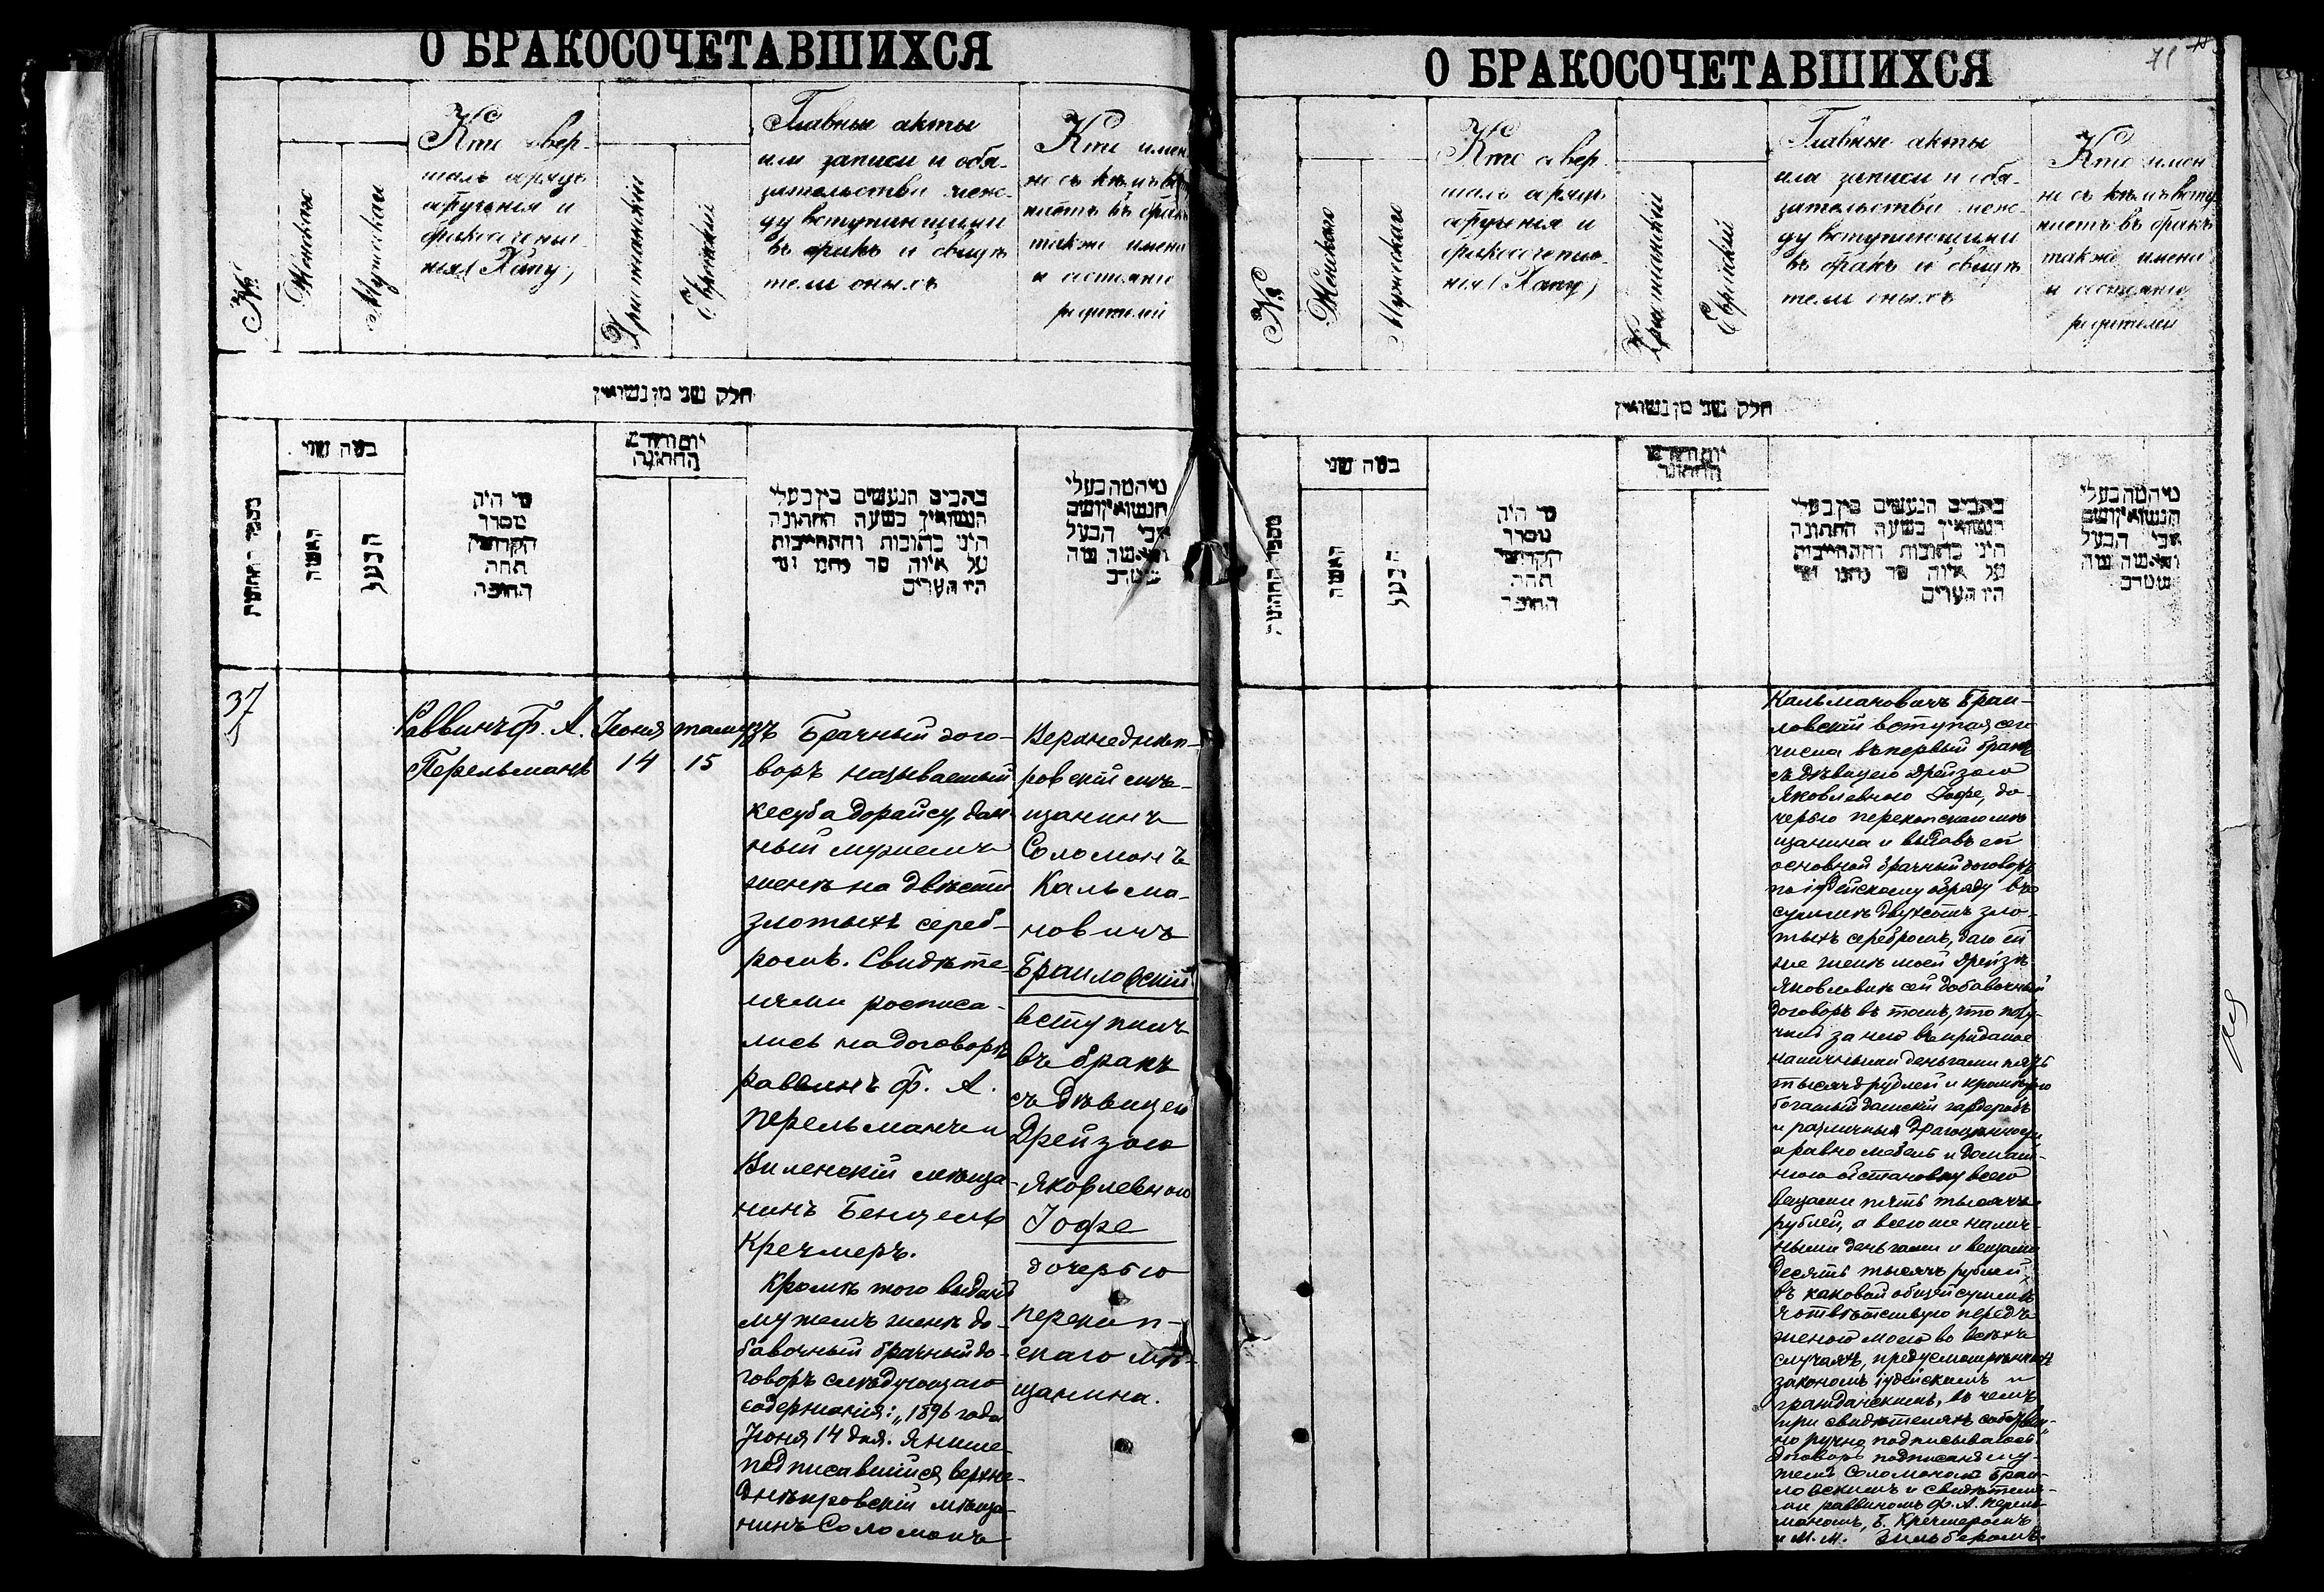 О БРАКОСОЧЕТАВШИХСЯ
№
Женскаго
Мужескаго
Кто совер-
шалъ обрядъ
обрученія и
бракосочета-
нія (Хупу)
Христіанскій
Еврейскій
Главные акты
или записи и обя-
зательства меж-
ду вступающими
въ бракъ и свидѣ
тели оныхъ
Кто имен
но съ кѣмъ всту
паетъ въ бракъ
также имена
и состояніе
родителей
חלק שני מן נשואין
מספר החתונה
כמה שני
האשה
הבעל
מי היה
מסדר
הקדושין
תחת
החופה
יום וחודש
החתונה
כתבים הנעשים בין בעלי
הנשואין בשעה החתונה
היינו כתובות והתחייבות
על איזה סך נתנו ומי
היו העדים
מי המה בעלי
הנשואין ושם
אבי הבעל
והאשה
37
Раввинъ Ф. А.
Перельманъ
Іюня
14
тамузъ
15
Брачный дого-
воръ называемый
кесуба дорайсу, дан-
ный мужемъ
женѣ на двѣсти
злотыхъ сереб-
ромъ. Свидѣте-
лями росписа-
лись на договорѣ
раввинъ Ф. А.
Перельманъ и
Виленскій мѣща-
нинъ Бенцель
Кречмеръ.
Кромѣ того выданъ
мужемъ женѣ до-
бавочный брачный до-
говоръ слѣдующаго
содержанія: „1896 года
Іюня 14 дня. Я ниже-
подписавшійся верхне-
днѣпровскій мѣща-
нинъ Соломонъ
Верхнеднѣп-
ровскій мѣ-
щанинъ
Соломонъ
Кальма-
новичъ
Браиловскій
вступилъ
въ бракъ
съ дѣвицею
Дрейзою
Яковлевною
Іофе
дочерью
перекоп-
скаго мѣ-
щанина.
О БРАКОСОЧЕТАВШИХСЯ
71
№
Женскаго
Мужескаго
Кто совер
шалъ обрядъ
обрученія и
бракосочета-
нія (Хупу)
Христіанскій
Еврейскій
Главные акты
или записи и обя-
зательства меж-
ду вступающими
въ бракъ и свидѣ
тели оныхъ
Кто имен
но съ кѣмъ всту
паетъ въ бракъ
также имена
и состояніе
родителей
חלק שני מן נשואין
מספר החתונה
כמה שני
האשה
הבעל
מי היה
מסדר
הקדושין
תחת
החופה
יום וחודש
החתונה
כתבים הנעשים בין בעלי
הנשואין בשעה החתונה
היינו כתובות והתחייבות
על איזה סך נתנו ומי
היו העדים
מי המה בעלי
הנשואין ושם
אבי הבעל
והאשה
Кальмановичъ Браи-
ловскій вступая сего
числа въ первый бракъ
съ дѣвицею Дрейзою
Яковлевною Іофе, до-
черью перекопскаго мѣ
щанина и выдавъ ей
основной брачный договоръ
по іудейскому обряду въ
суммѣ двухсотъ зло-
тыхъ серебромъ, даю ей
же женѣ моей Дрейзѣ
Яковлевнѣ сей добавочный
договоръ въ томъ, что полу-
чилъ за нею въ приданое
наличными деньгами пять
тысячъ рублей и кромѣ того
богатый дамскій гардеробъ
и различныя драгоцѣнности
а равно мебель и домаш-
нюю обстановку всего
вещами пять тысячъ
рублей, а всего же налич-
ными деньгами и вещами
десять тысячъ рублей,
въ каковой общей суммѣ
я отвѣтствую передъ
женою моею во всѣхъ
случаяхъ, предусмотрѣнныхъ
закономъ іудейскимъ и
гражданскимъ, въ чемъ
при свидѣтеляхъ собствен-
но ручно подписываюсь."
Договоръ подписанъ му-
жемъ Соломономъ Браи-
ловскимъ и свидѣтеля-
ми раввиномъ Ф. А. Перель-
маномъ, Б. Кречмеромъ
и М. М. Зильберомъ.